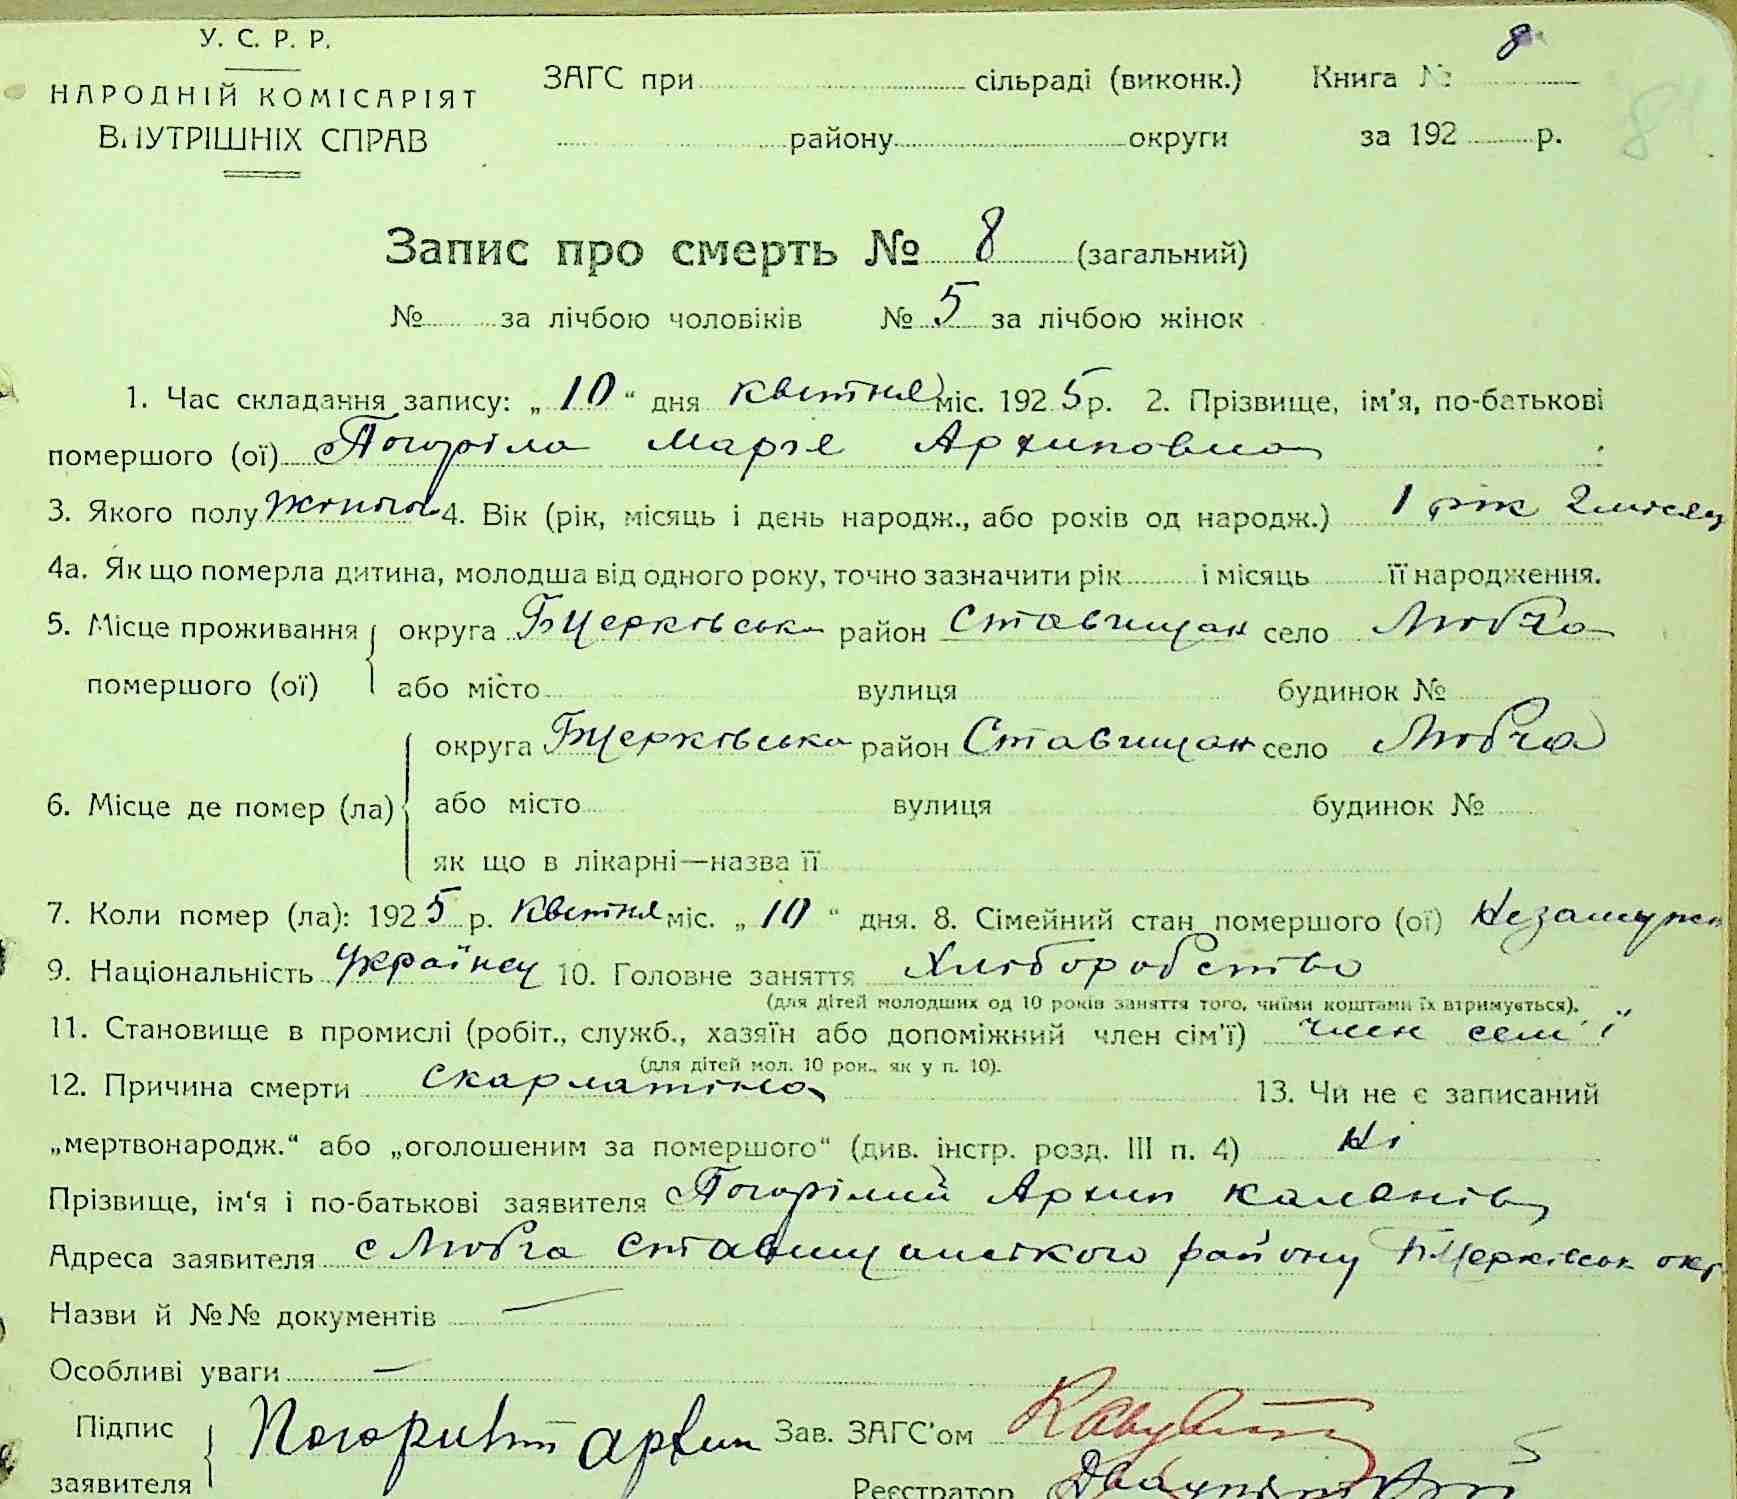 У. С. Р. Р.
НАРОДНІЙ КОМІСАРІЯТ
ВНУТРІШНІХ СПРАВ
ЗАГС при сільраді (виконк.)
району округи
Книга № 8
за 192 р.
8
Запис про смерть № 8 (загальний)
№ за лічбою чоловіків № 5 за лічбою жінок
1. Час складання запису: „10“ дня квітня міс. 1925 р. 2. Прізвище, ім'я, по-батькові
помершого (ої) Погоріла Марія Архиповна
3. Якого полу жіночої 4. Вік (рік, місяць і день народж., або років од народж.) 1 рік 2 місяц
4а. Як що померла дитина, молодша від одного року, точно зазначити рік і місяць її народження.
5. Місце проживання округа БЦерківська район Ставищан село Любча
помершого (ої) або місто вулиця будинок №
округа БЦерківська район Ставищан село Любча
6. Місце де помер (ла) або місто вулиця будинок №
як що в лікарні—назва її
7. Коли помер (ла): 1925 р. квітня міс. „10“ дня. 8. Сімейний стан помершого (ої) незамужн
9. Національність Українец 10. Головне заняття Хліборобство
(для дітей молодших од 10 років заняття того, чиїми коштами їх втримується).
11. Становище в промислі (робіт., служб., хазяїн або допоміжний член сім'ї) член семї
(для дітей мол. 10 рок., як у п. 10).
12. Причина смерти скарлатіна 13. Чи не є записаний
„мертвонародж.“ або „оголошеним за помершого“ (див. інстр. розд. III п. 4) ні
Прізвище, ім'я і по-батькові заявителя Погорілий Архип Каленів
Адреса заявителя с Любча Ставищанського району БЦерківськ окр
Назви й №№ документів —
Особливі уваги —
Підпис
заявителя
Архип Зав. ЗАГС'ом
Реєстратор